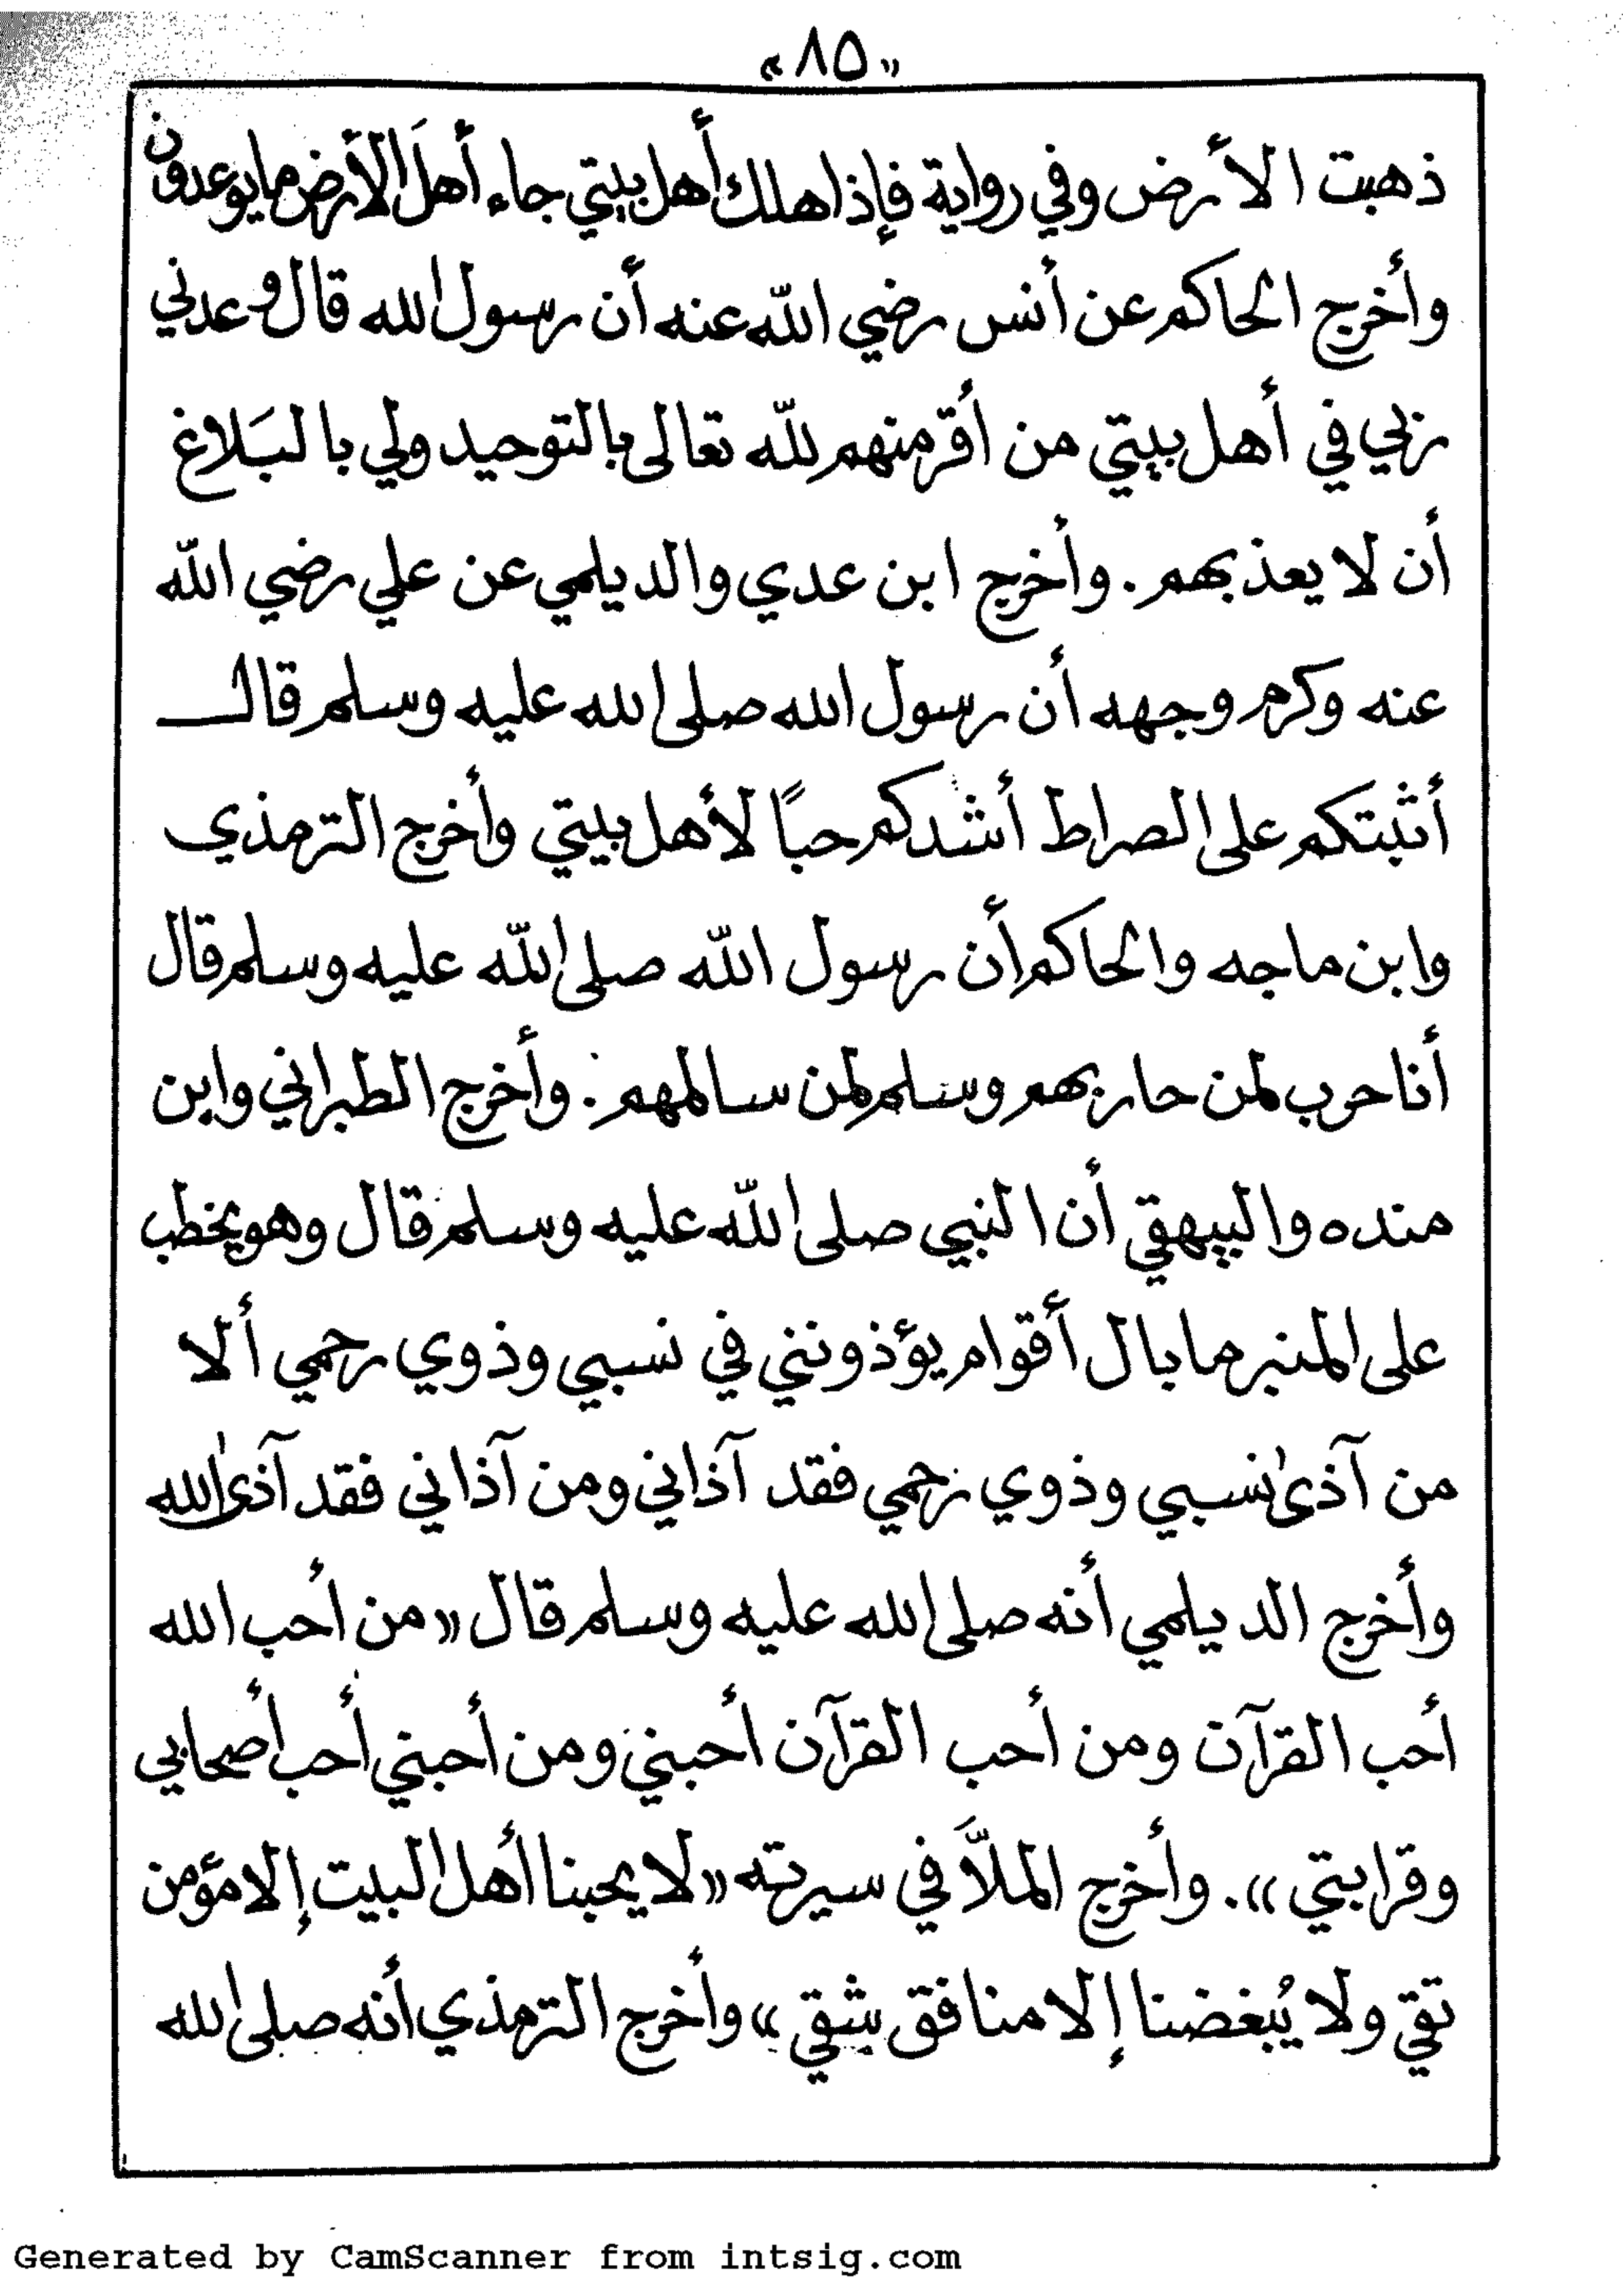 «٨٥»
ذهبت الأرض وفي رواية فإذا هلك أهل بيتي جاء أهلَ الأرض ما يوعدون
وأخرج الحاكم عن أنس رضي الله عنه أن رسول الله قال وعدني
ربي في أهل بيتي من أقر منهم لله تعالى بالتوحيد ولي بالبَلاغ
أن لا يعذبهم . وأخرج ابن عدي والديلمي عن علي رضي الله
عنه وكرم وجهه أن رسول الله صلى الله عليه وسلم قالـ
أثبتكم على الصراط أشدكم حباً لأهل بيتي وأخرج الترمذي
وابن ماجه والحاكم أن رسول الله صلى الله عليه وسلم قال
أنا حرب لمن حاربهم وسلم لمن سالمهم . وأخرج الطبراني وابن
منده والبيهقي أن النبي صلى الله عليه وسلم قال وهو يخطب
على المنبر ما بال أقوام يؤذونني في نسبي وذوي رحمي ألا
من آذى نسبي وذوي رحمي فقد آذاني ومن آذاني فقد آذى الله
وأخرج الديلمي أنه صلى الله عليه وسلم قال «من أحب الله
أحب القرآن ومن أحب القرآن أحبني ومن أحبني أحب أصحابي
وقرابتي» . وأخرج الملاَّ في سيرته «لا يحبنا أهل البيت إلا مؤمن
تقي ولا يُبغضنا إلا منافق شقي» وأخرج الترمذي أنه صلى الله
Generated by CamScanner from intsig.com